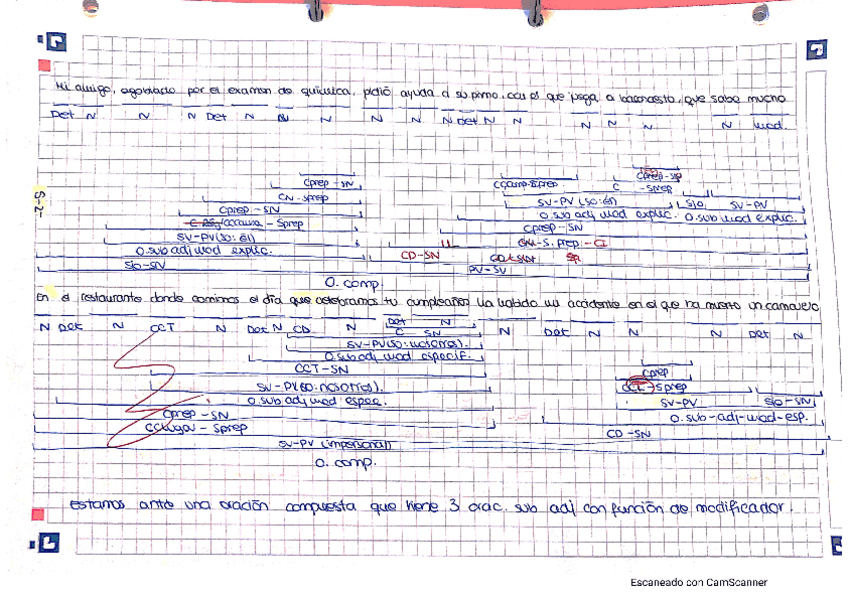 Mi amigo, agobiado por el examen de química, pidió ayuda a su primo, con el que juega a baloncesto, que sabe mucho
Det N N N Det N N N N N N Det N N N N N N Mod.
Cprep-SN
CN-Sprep
Cprep-SN
Sprep
SV-PV(SO:él)
O.sub adj mod explic.
SJO-SN
CD-SN
C
SV-PV(SO:él) SJO SV-PV
O.sub adj mod explic. O.sub mod explic.
Cprep-SN
S.prep-CI
PV-SV
S-2-
O.comp.
En el restaurante donde comimos el día que celebramos tu cumpleaños ha habido un accidente en el que ha muerto un camarero
N Det N CCT N Det N CD N Det N N Det N N N Det N
C SN
SV-PV(SO:nosotros).
O.sub adj mod especif.
CCT-SN
SV-PV(SO:nosotros).
O.sub adj mod espec.
Cprep-SN
CCLugar-Sprep
Cprep
Sprep
SV-PV SJO-SN
O.sub-adj-mod-esp.
CD-SN
SV-PV (impersonal)
O.comp.
Estamos ante una oración compuesta que tiene 3 orac. sub adj con función de modificador.
Escaneado con CamScanner